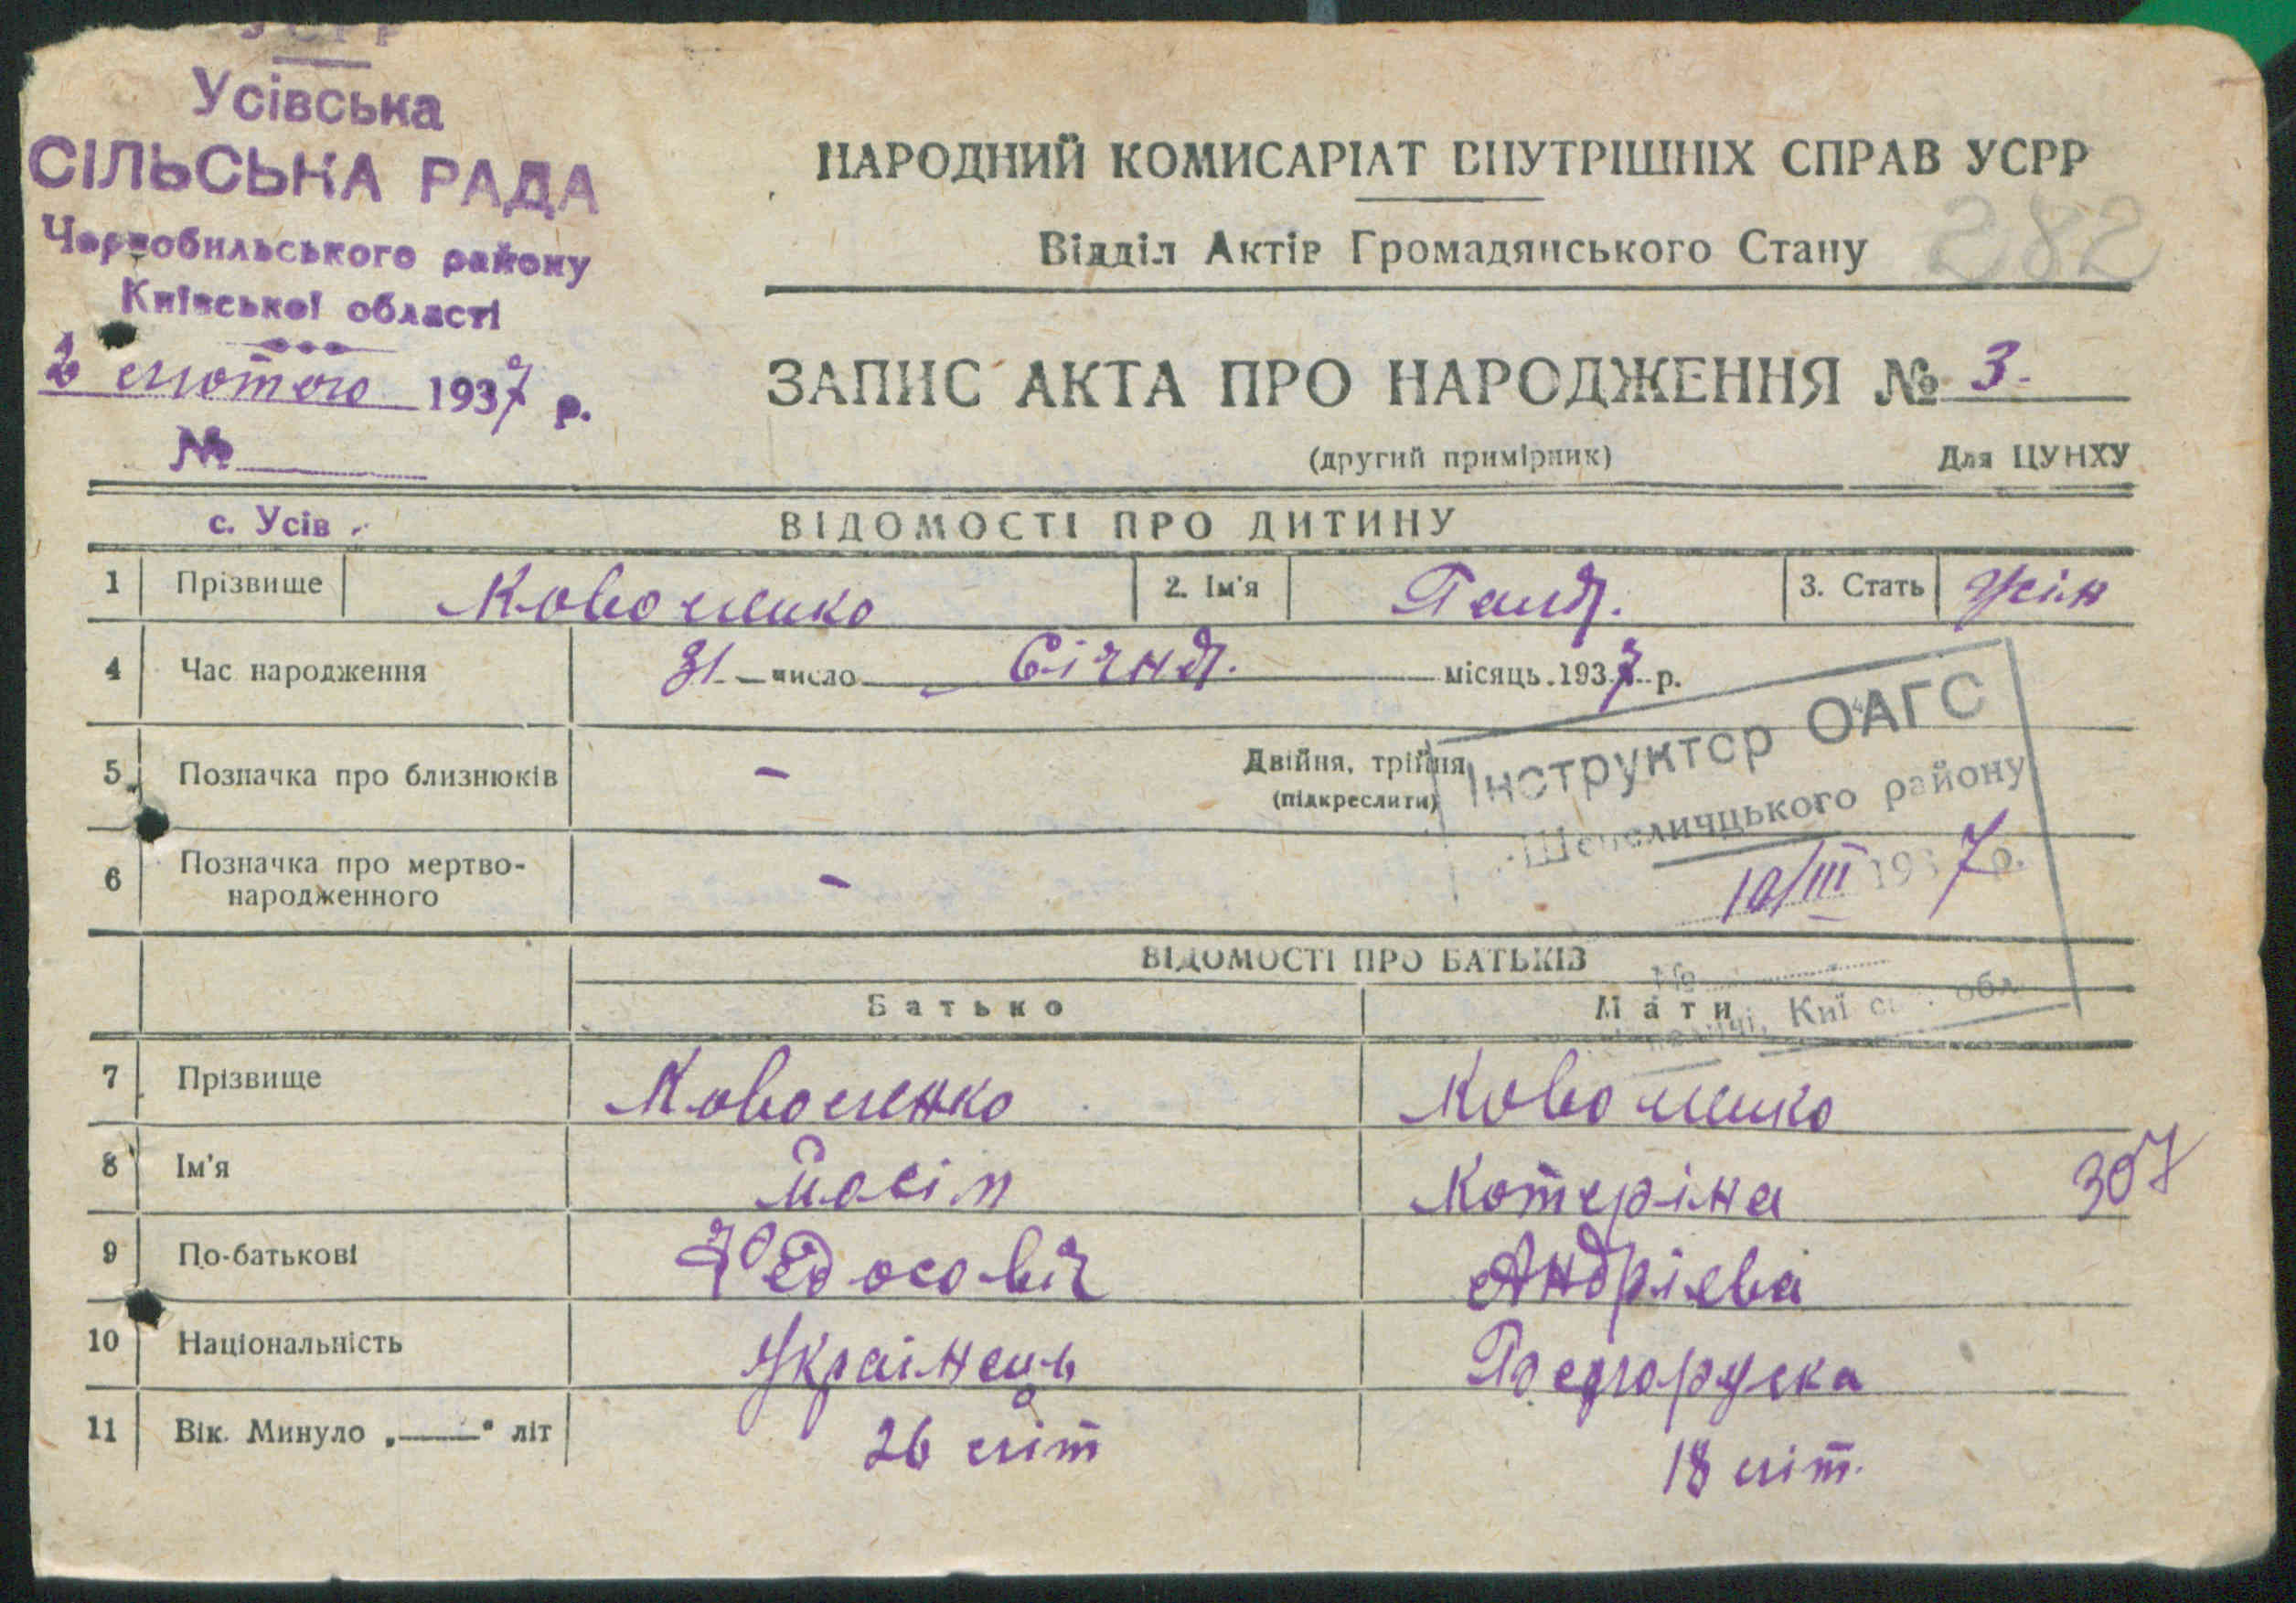 УСРР
Усівська
СІЛЬСЬКА РАДА
Чорнобильського району
Київської області
2 лютого 1937 р.
№
НАРОДНИЙ КОМИСАРІАТ ВНУТРІШНІХ СПРАВ УСРР
Відділ Актів Громадянського Стану
282
ЗАПИС АКТА ПРО НАРОДЖЕННЯ № 3.
(другий примірник) Для ЦУНХУ
с. Усів ВІДОМОСТІ ПРО ДИТИНУ
1 Прізвище Коваленко 2. Ім'я Галя. 3. Стать жін
4 Час народження 31 число Січня. місяць 1937 р.
5 Позначка про близнюків - Двійня, трійня
(підкреслити)
Інструктор ОАГС
Шепеличцького району
10/III 1937 р.
№
Київськ. обл
6 Позначка про мертво-
народженного -
ВІДОМОСТІ ПРО БАТЬКІВ
Батько Мати
7 Прізвище Коваленко Коваленко
8 Ім'я Йосіп Котеріна 307
9 По-батькові Федосовіч Андрієва
10 Національність Українець
11 Вік. Минуло „—“ літ 26 літ 18 літ.